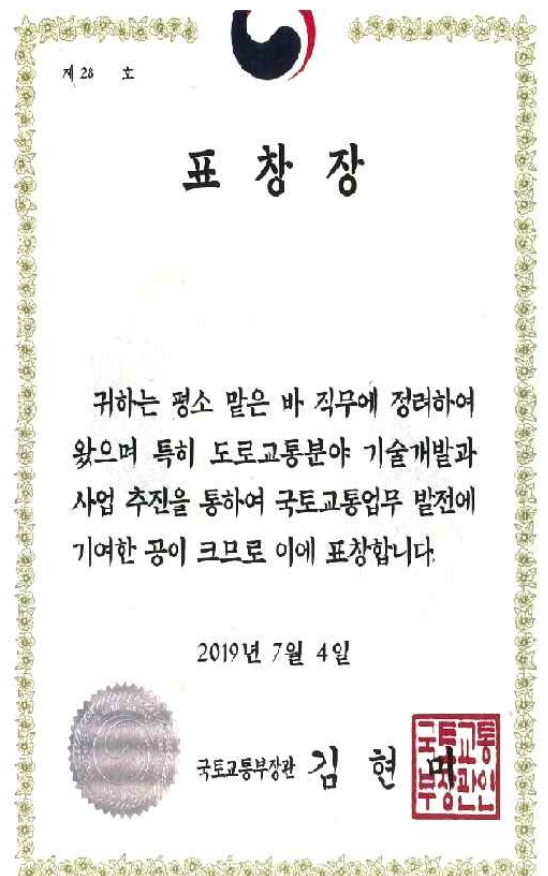 제 28 호
표 창 장
귀하는 평소 맡은 바 직무에 정려하여
왔으며 특히 도로교통분야 기술개발과
사업 추진을 통하여 국토교통업무 발전에
기여한 공이 크므로 이에 표창합니다.
2019년 7월 4일
국토교통부장관 김 현 미
국토교통
부장관인